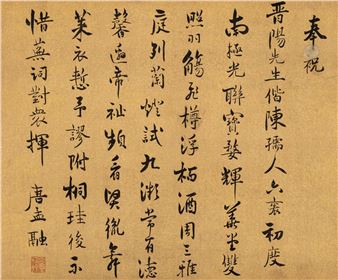 奉祝
晉陽先生偕陳孺人六袠初度
南極光聯寶婺輝華堂雙
照羽觴飛樽浮栢酒周三雅
庭列蘭燈試九微常有德
馨邀帝祉頻看賢胤舞
萊衣慙予謬附桐珪後不
惜蕪詞對衆揮 唐孟融